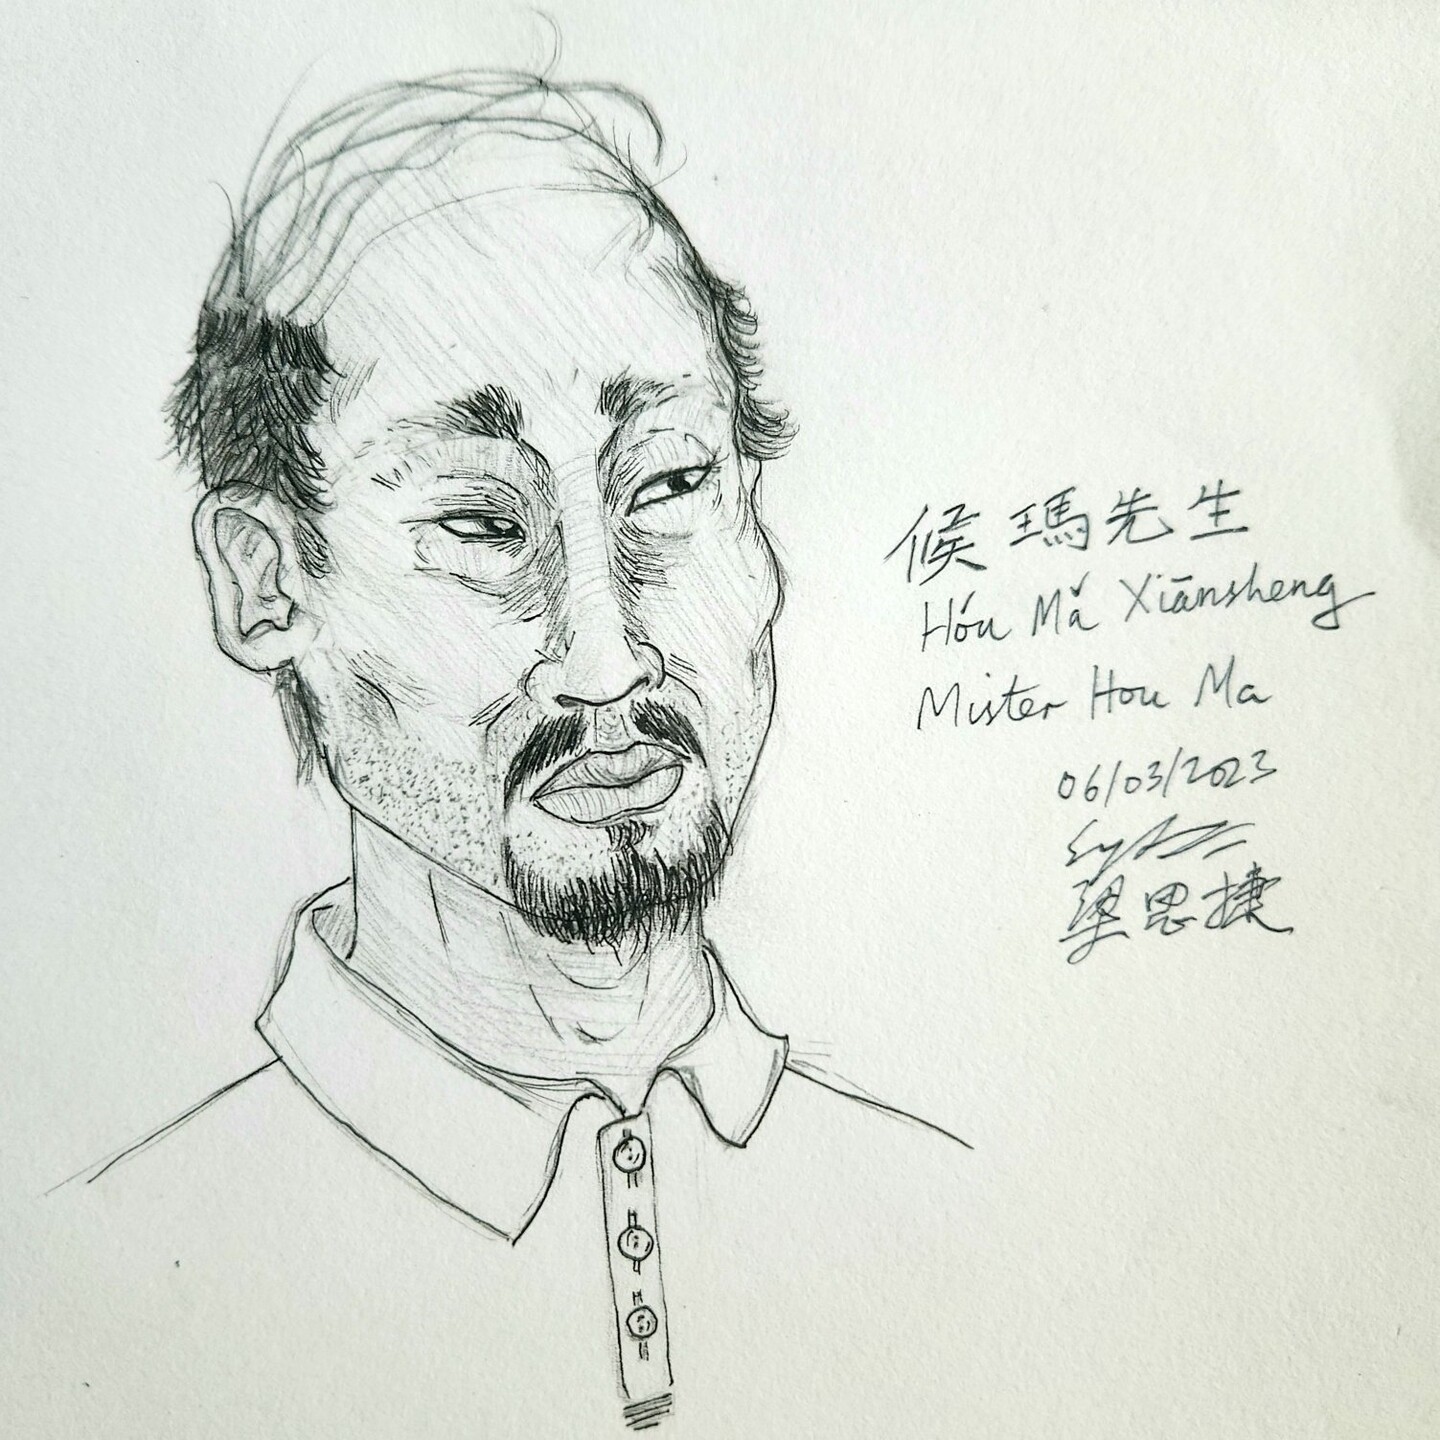 候瑪先生
Hóu Mǎ Xiānsheng
Mister Hou Ma
06/03/2023
梁思捷